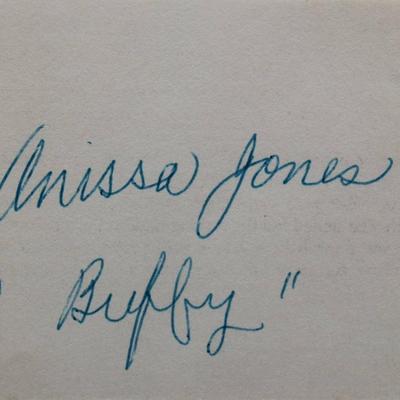 Anissa Jones
"Buffy"